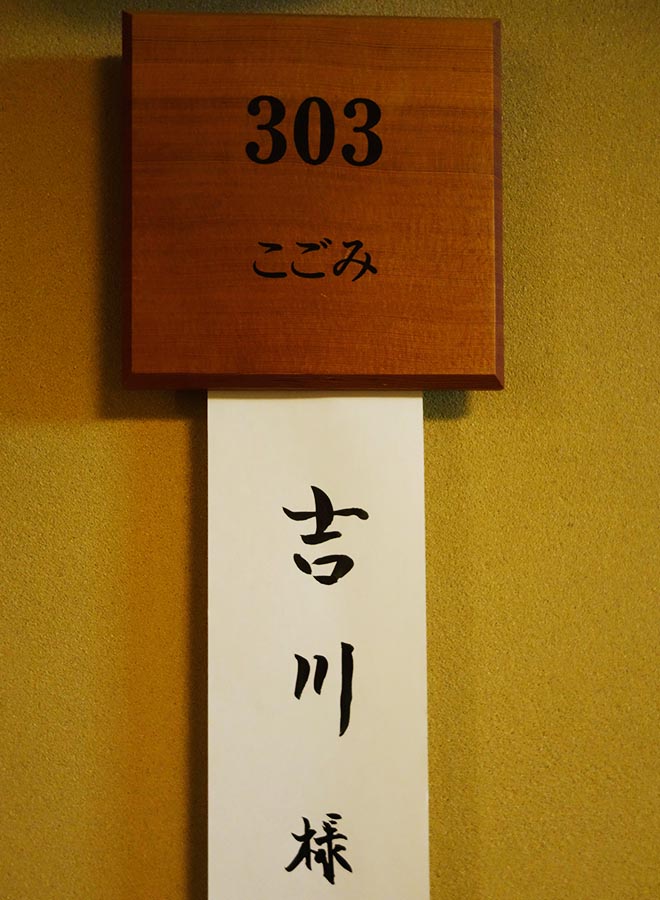 303
こごみ
吉川様